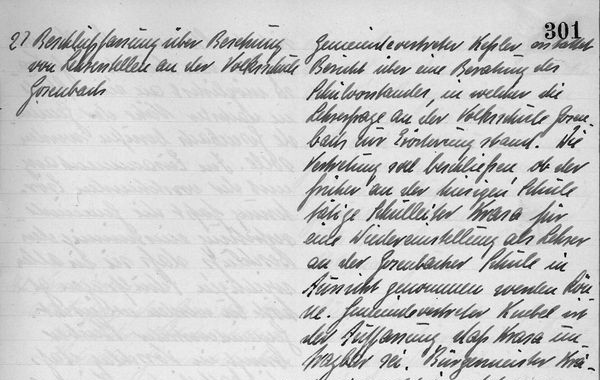 301
2) Beschlußfassung über Besetzung
von Lehrerstellen an der Volksschule
Josenbach
Gemeindevertreter Keßler erstattet
Bericht über eine Beratung des
Schulvorstandes, in welcher die
Lehrerfrage an der Volksschule Josen-
bach zur Erörterung stand. Die
Vertretung soll beschließen ob der
früher an der hiesigen Schule
tätige Schulleiter Krasa für
eine Wiedereinstellung als Lehrer
an der Josenbacher Schule in
Aussicht genommen werden kön-
ne. Gemeindevertreter Knebel ist
der Auffassung, daß Krasa un-
tragbar sei. Bürgermeister Krä-